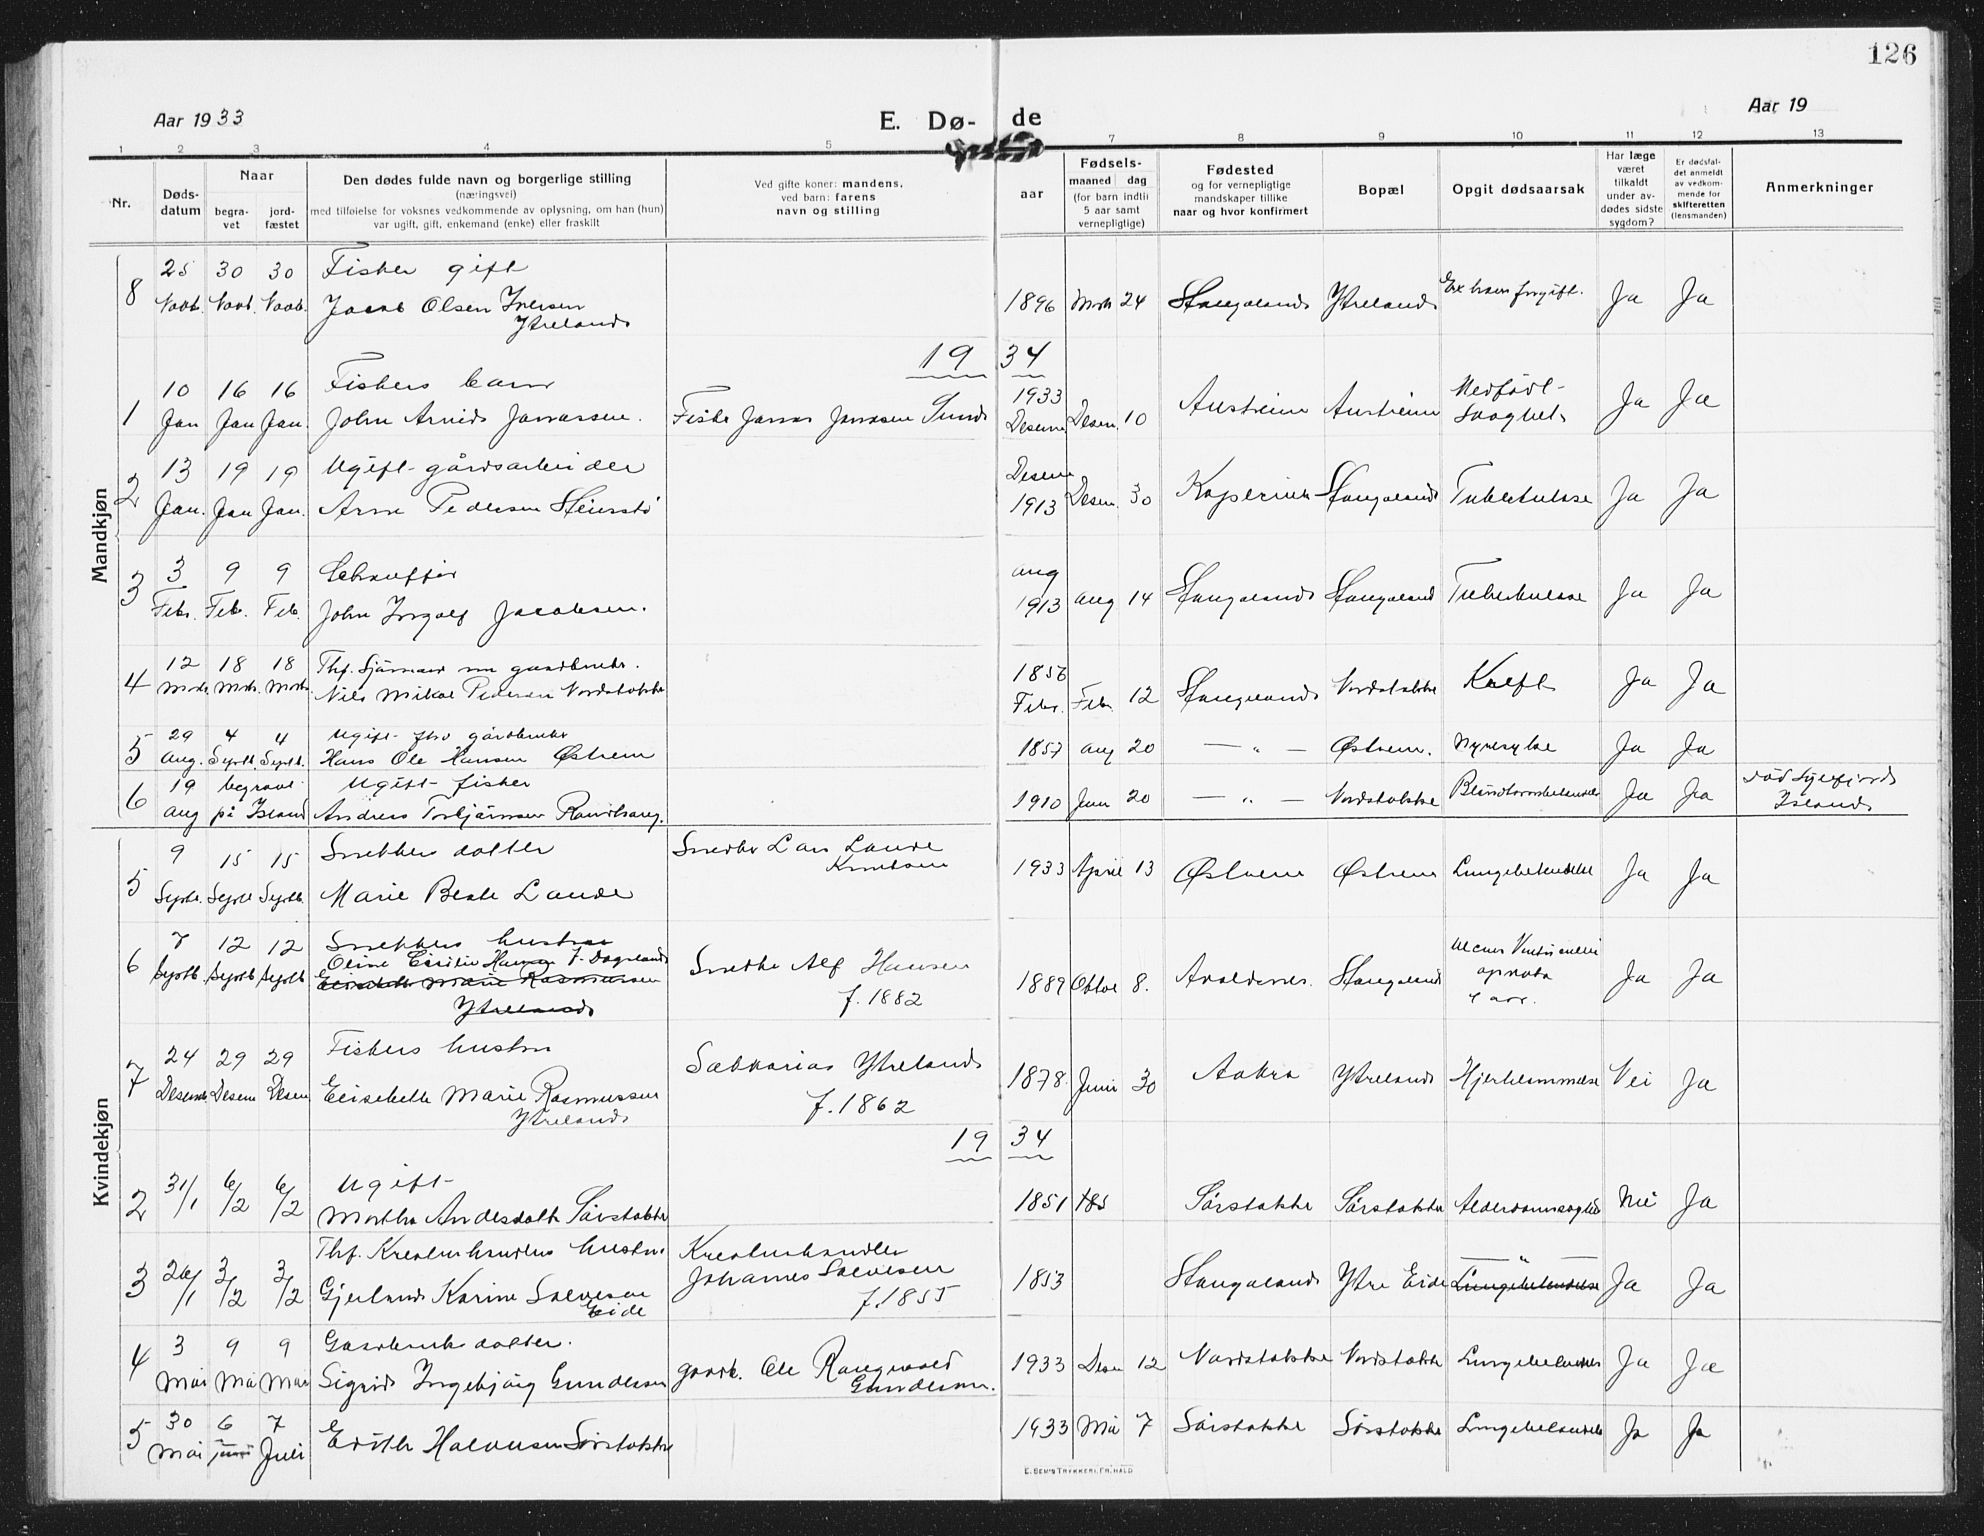 126
Aar 1933
E. Dø-
de
Aar 19
1 2 3 4 5 7 8 9 10 11 12 13
Nr.
Døds-
datum
Naar
begra-
vet
jord-
fæstet
Den dødes fulde navn og borgerlige stilling
(næringsvei)
med tilføielse for voksnes vedkommende av oplysning, om han (hun)
var ugift, gift, enkemand (enke) eller fraskilt
Ved gifte koner: mandens,
ved barn: farens
navn og stilling
aar
Fødsels-
maaned dag
(for barn indtil
5 aar samt
vernepligtige)
Fødested
og for vernepligtige
mandskaper tillike
naar og hvor konfirmert
Bopæl
Opgit dødsaarsak
Har læge
været
tilkaldt
under av-
dødes sidste
sygdom?
Er dødsfal-
det anmeldt
av vedkom-
mende for
skifteretten
(lensmanden)
Anmerkninger
Mandkjøn
25 30 30 Fisker gift
8 Novb. Novb. Novb. Jacob Olsen Iversen 1896 Mrs 24 Stangeland Ytreland Ja Ja
Ytreland
19 34
10 16 16 Fiskers barn 1933 Medfödt
1 Jan Jan Jan. John Arvid Jonassen. Fisker Jonas Jonassen Sund Desem Desem. 10 Austreim Austreim Svaghet Ja Ja
13 19 19 Ugift gårdsarbeider Desem
2 Jan. Jan Jan. Arne Pedersen Steinstö 1913 Desem. 30 Kopervik Stangeland Tuberkulose Ja Ja
3 9 9 Schauffør aug
3 Febr. Feb. Feb. John Ingolf Jacobsen. 1913 aug 14 Stangeland Stangeland Tuberkulose Ja Ja
12 18 18 Thf. Sjömann nu gaardbruker. 1856
4 Mrs. Mrs. Mrs. Nils Mikal Pedersen Nordstokke Febr. Febr. 12 Stangeland Nordstokke Kreft Ja Ja
29 4 4 Ugift fhv gårdbruker
5 Aug. Septb. Septb. Hans Ole Hansen Østrem 1857 aug 20 — " — Østrem. Nyresyke Ja Ja
19 begravet Ugift fisker
6 aug på Island Andreas Torbjörnsen 1910 Juni 20 — " — Nordstokke Ja Ja Island
Kvindekjøn
9 15 15 Snekkers datter Snekker Lars Lande
Knutsen
5 Septb. Septb. Septb. Marie Beate Lande 1933 April 13 Østrem Østrem Lungebetendelse Ja Ja
7 12 12 Snekkers hustru
6 Septb. Septb. Septb. Oline Cecilie Hansen f. Dagsland Snekker Alf Hansen 1889 Oktbr 8. Avaldsnes. Stangeland Ja Ja
Elisabeth Marie Rasmussen f. 1882
Ytreland
24 29 29 Fiskers hustru Sakkarias Ytreland
7 Desemb Desem Desem Elisabeth Marie Rasmussen f. 1862 1878. Juni 30 Aakra Ytreland Hjertelammelse Nei Ja
Ytreland
19 34
Ugift
2 31/1 6/2 6/2 Martha Andersdatt. Sörstokke 1851 Sörstokke Sörstokke Alderdomssvaghet Nei Ja
Thf. Kreaturhandlers hustru Kreaturhandler
3 26/1 3/2 3/2 Gjerland Karine Salvesen Johannes Salvesen 1853 Stangeland Ytre Eide — " — Lungebetendelse Ja Ja
Eide f. 1855
3 9 9 Gaardbruk datter.
4 Mai Mai Mai Sigrid Ingebjörg Gundersen gaardb. Ole Rangvald 1933 Desm 12 Nordstokke Nordstokke Lungebetendels Ja Ja
Gundersen.
30 6 7
5 Mai juni Juli Edith Halvorsen Sörstokke 1933 Mai 7 Sörstokke Sörstokke Lungebetendels Ja Ja
E. SEM'S TRYKKERI, FR.HALD